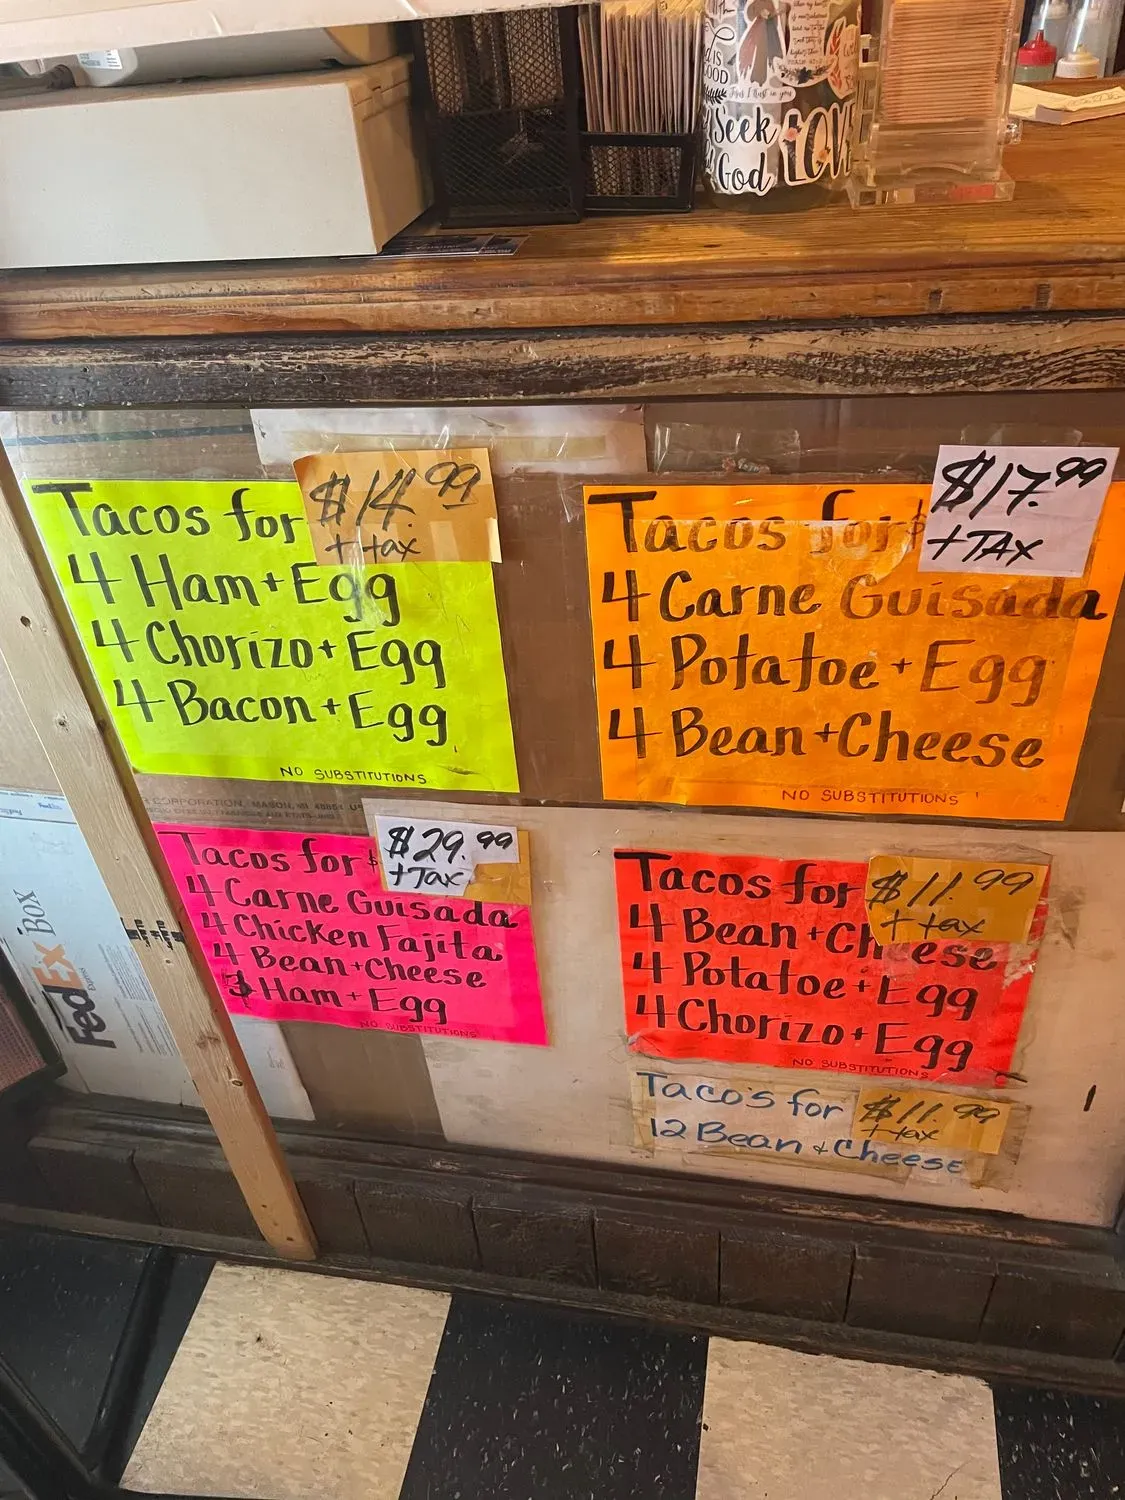 Seek
God
LOVE
GOOD
Jesus I trust in you
Tacos for $14.99
+ tax
4 Ham + Egg
4 Chorizo + Egg
4 Bacon + Egg
NO SUBSTITUTIONS
Tacos for $ $17.99
+ TAX
4 Carne Guisada
4 Potatoe + Egg
4 Bean + Cheese
NO SUBSTITUTIONS
CORPORATION, MASON, MI 48854 US
Tacos for $ $29.99
+ Tax
4 Carne Guisada
4 Chicken Fajita
4 Bean + Cheese
Ham + Egg
NO SUBSTITUTIONS
Tacos for $11.99
+ tax
4 Bean + Cheese
4 Potatoe + Egg
4 Chorizo + Egg
NO SUBSTITUTIONS
Taco's for $11.99
+ tax
12 Bean & Cheese
FedEx Box
Express